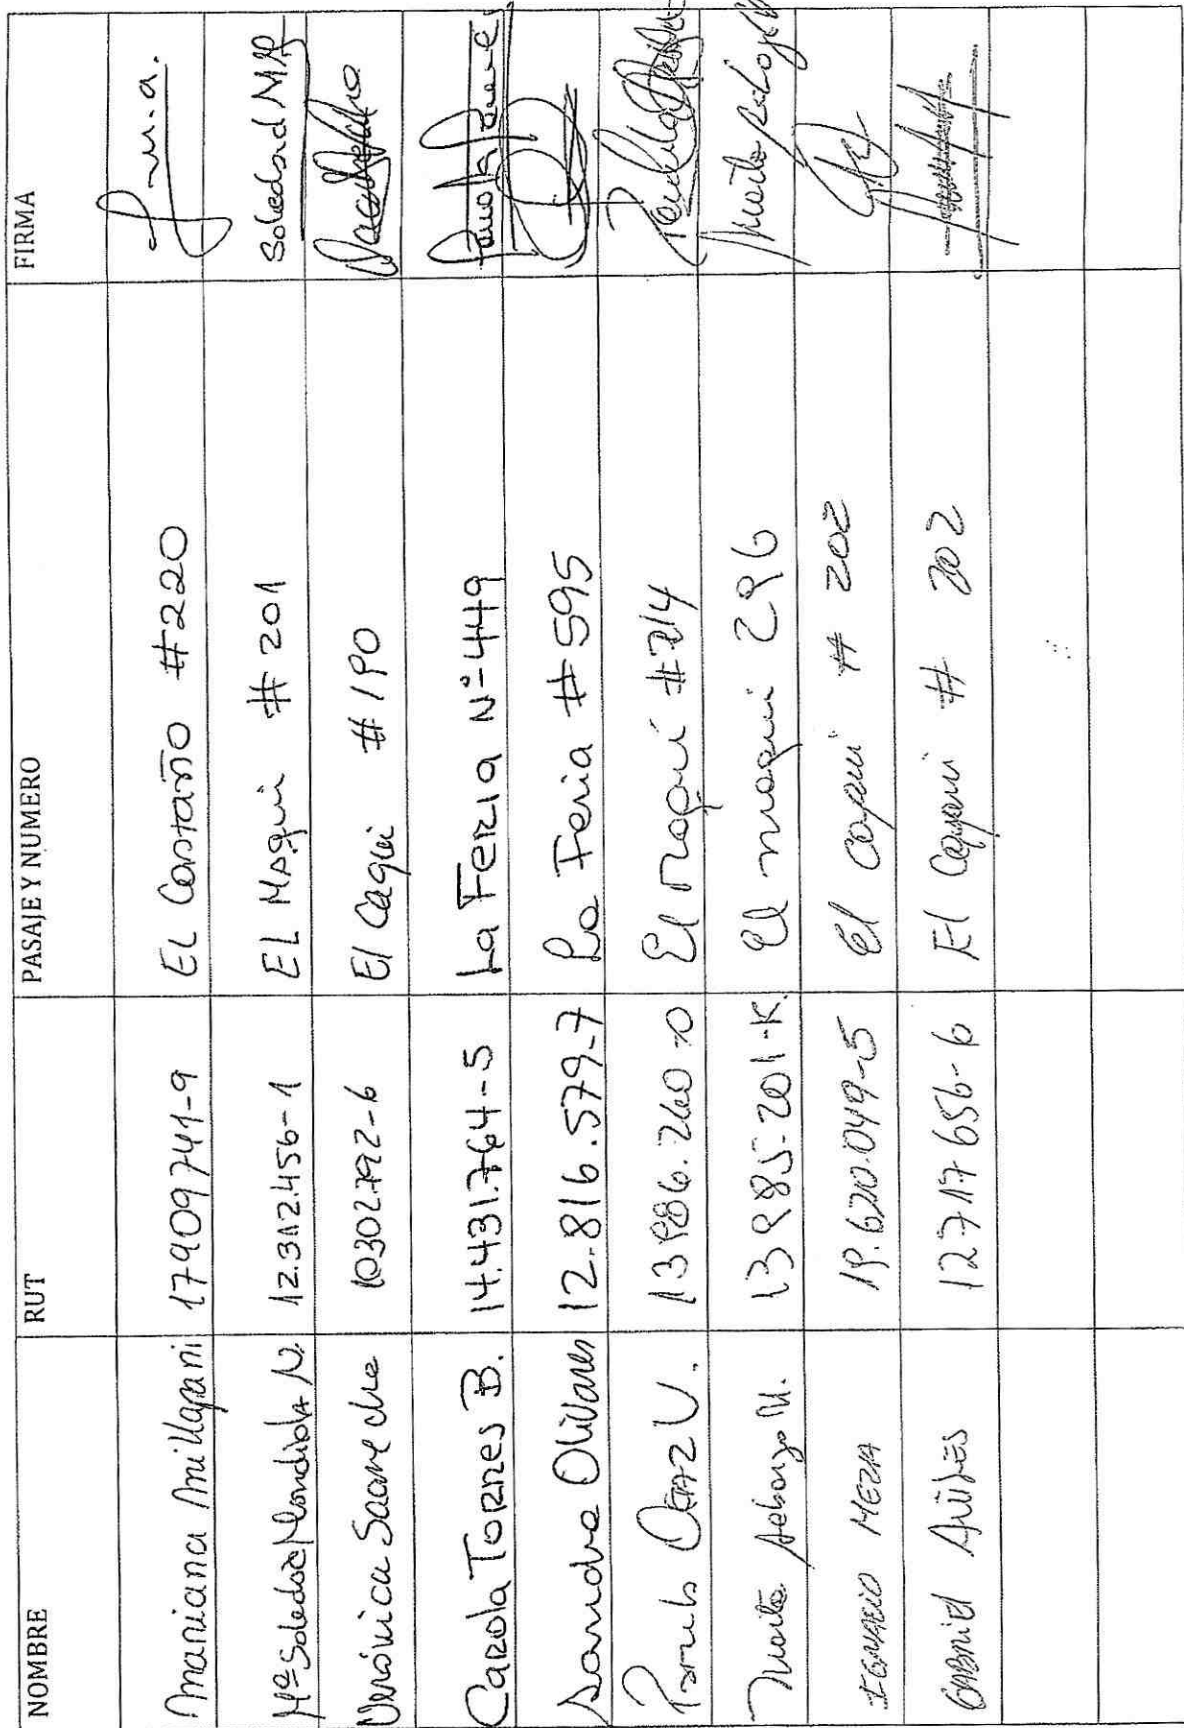 NOMBRE RUT PASAJE Y NUMERO FIRMA
Mariana Millapani 17909741-9 EL Castaño #220 J m.a.
Mª Soledad Mondiola N. 12.312.456-1 EL Maqui #201 Soledad MR
Verónica Saavedra 10302792-6 El Caqui #190
Carola Torres B. 14.431.764-5 La Feria Nº 449
Sandra Olivares 12.816.579-7 La Feria #595
13986.260-0 El maqui #214
13985.201-K. El maqui 296
IGNACIO MEZA 19.620.049-5 El Caqui # 202
GABRIEL 12717656-6 El Caqui # 202